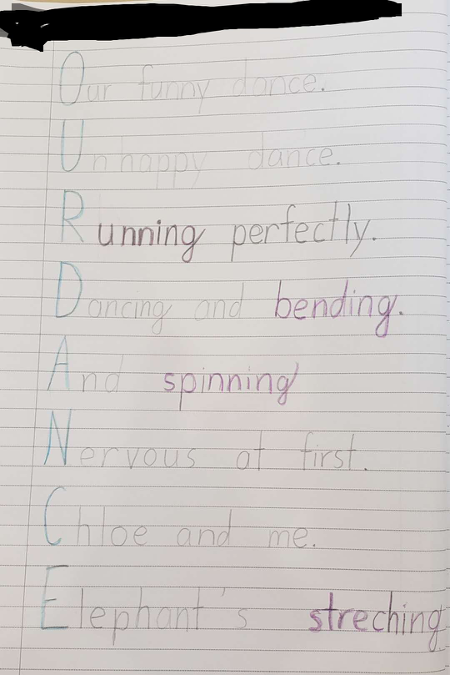 Our funny dance.
Unhappy dance.
Running perfectly.
Dancing and bending.
And spinning
Nervous at first.
Chloe and me.
Elephant's streching